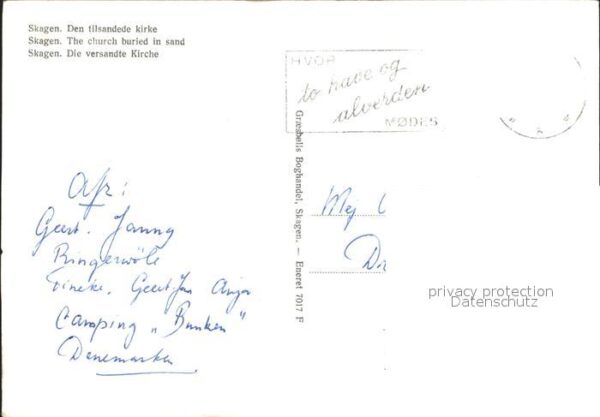 Skagen. Den tilsandede kirke
Skagen. The church buried in sand
Skagen. Die versandte Kirche
HVOR
to have og
alverden
MØDES
Græsbølls Boghandel, Skagen. — Eneret 7017 F
Afz:
Geert. Janny
Tineke, Geert Jan
Camping „Bunken"
Denemarken
Mej
privacy protection
Datenschutz